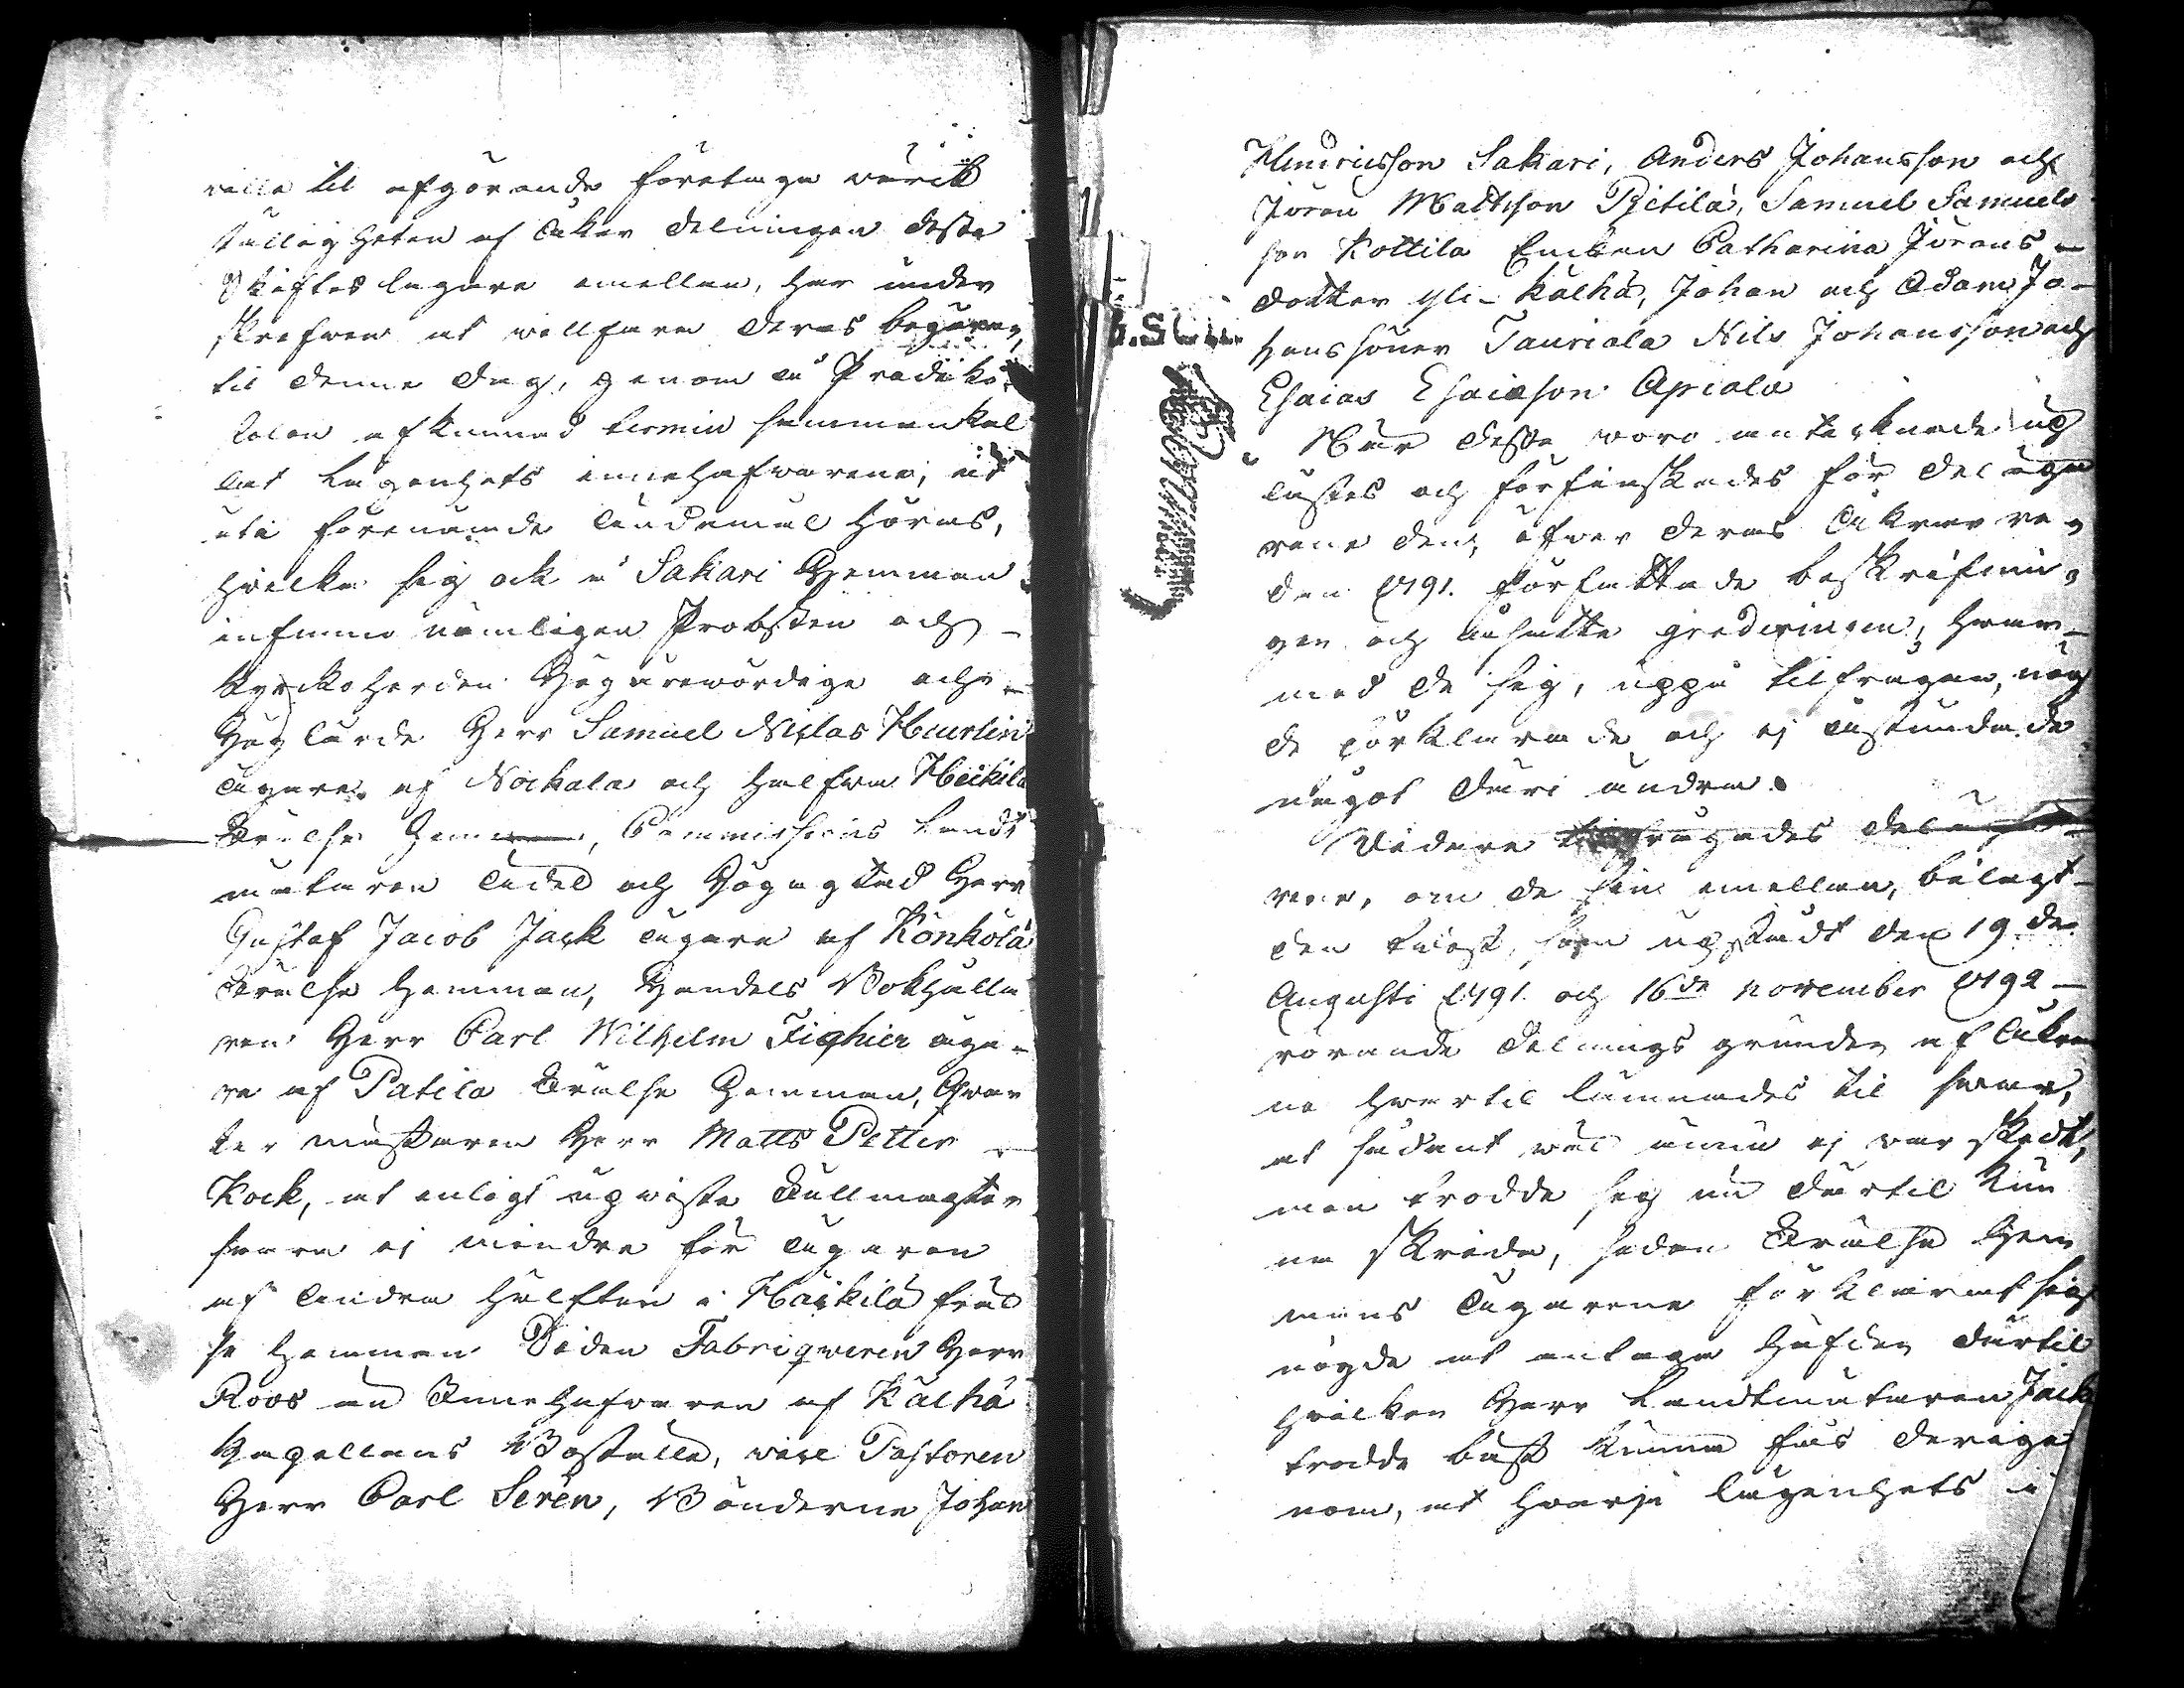 wille til afgörande företaga värck
ställigheten af Åker delningen desse
Skifteslagare emellan, har under
skrefven at villfara deras begäran,
til denne dag, genom å Prediko
stolen afkunnad termin sammankal
lat Lägenhets innehafvarena, at
uti förenämde ändamål höras,
hvilka sig ock å Sakari Hemman
infunno nämligen Probsten och
Kyrckoherden Högärewördige och
Höglärde Herr Samuel Niclas Heurlin
ägare af Nockala och halfva Heikilä
Frälse Hemman, Commissions Landt
mätaren Ädel och Högagtad Herr
Gustaf Jacob Jack ägare af Könkölä
Frälse Hemman, Handels Bokhålla
ren Herr Carl Wilhelm Fighier äga-
re af Patila Frälse Hemman, Qvar
ter mästaren Herr Matts Petter
Kock, at enligt upviste Fullmagter
svara ej mindre för ägaren
af andra hälften i Häikilä fräl
se Hemman Viden Fabriqveren Herr
Roos än Innehafvaren af Kälhä
Capellans Boställe, vice Pastoren
Herr Carl Serén, Bönderne Johan
Hindricsson Sakari, Anders Johansson och
Jöran Mattsson Pietilä, Samuel Samuels
son Kottila Enckan Catharina Jörans
dotter Yli-Kälhä, Johan och Adam Jo-
hanssöner Tauriala Nils Johansson och
Esaias Esaiæson Apiala
När desse voro antecknade up
lästes och förfinskades för delägar
rene den, öfver deras Åkrar re-
dan 1791. författade beskrifnin-
gen och åsatte graderingen, hvar-
med de sig, uppå tilfrågan, nög
de förklarade och ej åstundade
något däri ändra.
Vidare tilfrågades delägar-
rene, om de sin emellan, bilagt
den tvist, som upstådt den 19de
Augusti 1791. och 16de November 1792
rörande delnings grunden af Åkrar
ne hvartil lämnades til svar,
at sådant väl ännu ej var skedt,
men trodde sig nu därtil kun
na skrida, sedan Frälse Hem
mans ägarene förklarat sig
nögde at antaga häfden därtil
hvilken Herr Landtmätaren Jack
trodde bäst kunna fås derige
nom, at hvarje lägenhets i